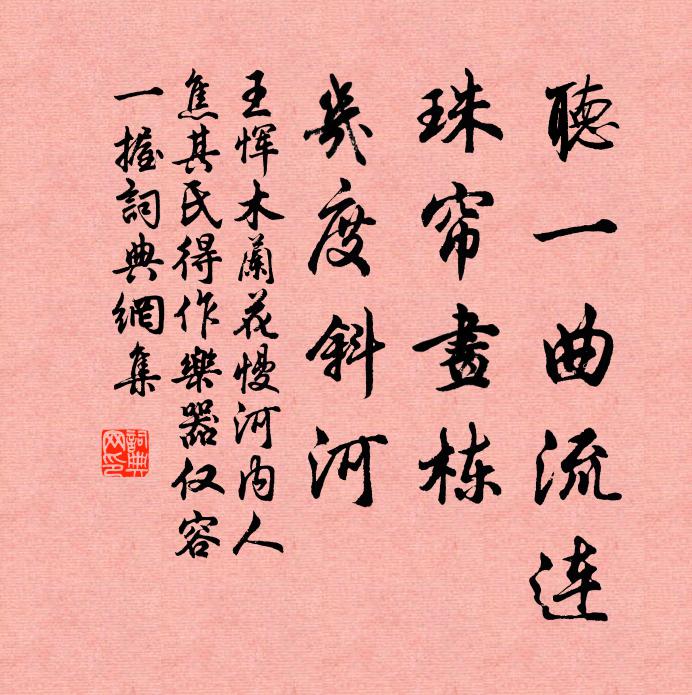 聽一曲流連
珠帘畫棟
幾度斜河
王恽木蘭花慢河内人
焦其民得作樂器仅容
一握詞典網集
詞典
网印